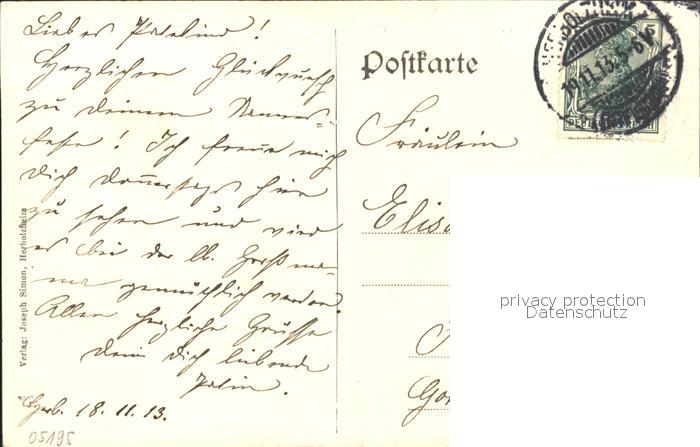 Liebes Patenkind!
Herzlichen Glückwunsch
zu Deinem Namens-
feste! Ich freue mich
Dich Donnerstags hier
zu sehen und wird
es bei der lb. Großma-
ma gemütlich werden.
Allen herzliche Grüsse
Deine Dich liebende
Patin.
Herb. 18.11.13.
05195
Verlag: Joseph Simon, Herbolzheim
Postkarte
Fräulein
Elis
privacy protection
Datenschutz
5
19.11.13. 5-6